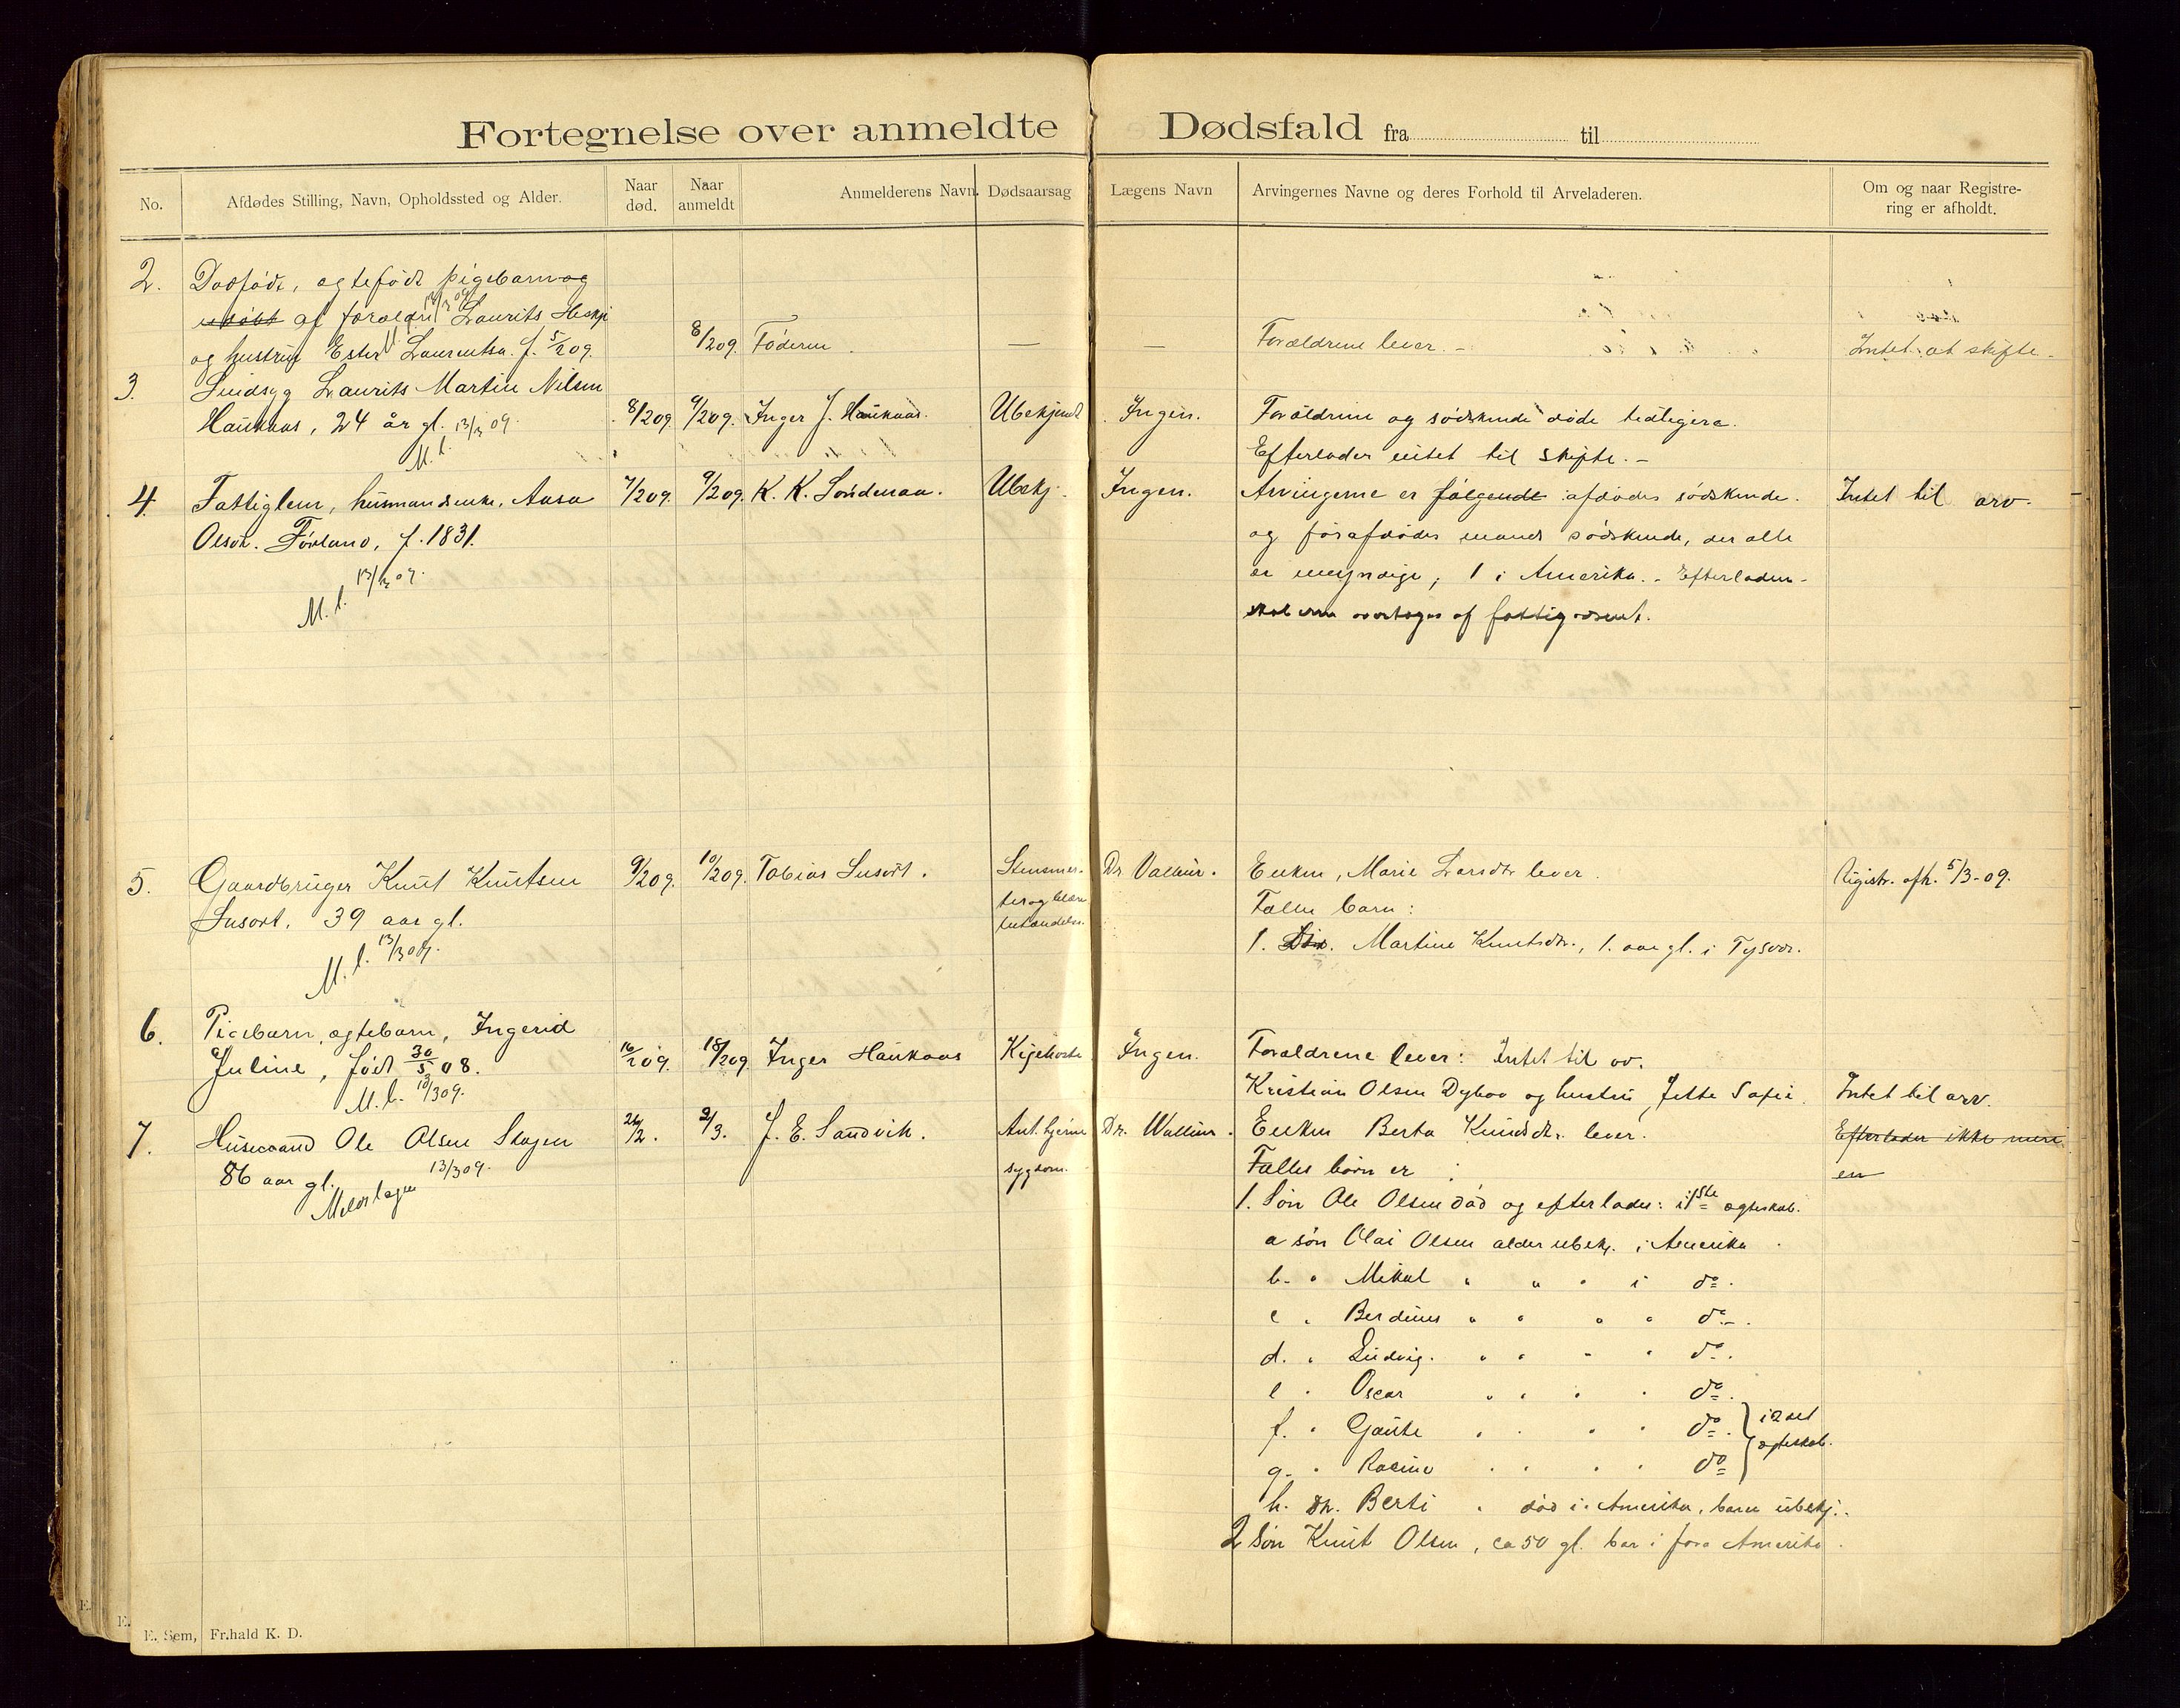 Fortegnelse over anmeldte Dødsfald fra til
No.
Afdødes Stilling, Navn, Opholdssted og Alder.
Naar død.
Naar anmeldt
Anmelderens Navn.
Dødsaarsag
Lægens Navn
Arvingernes Navne og deres Forhold til Arveladeren.
Om og naar Registrering er afholdt.
2.
Dødfødt, ægtefødt pigebarn og
udøbt af forældre Laurits
og hustru Ester Lauritsa. f. 5/2 09.
8/2 09. Føderen. — — Forældrene lever. — Intet at skifte.
3.
Sindsyg Laurits Martin Nilsen
Haukaas, 24 år gl. 13/3 09.
M. l.
8/2 09. 9/2 09. Inger J. Haukaas. Ubekjendt Ingen. Forældrene og sødskende døde tidligere.
Efterlader intet til skifte. —
4.
Fattiglem, husmandsenke, Aasa
Olsdt. Førland, f. 1831.
M. l. 13/3 09.
7/2 09. 9/2 09. K. K. Søndenaa. Ubekj. Ingen. Arvingerne er følgende afdødes sødskende.
og før afdødes mands sødskende, der alle
er myndige, 1 i Amerika. - Efterladen-
skaberne overtages af fattigvæsenet.
Intet til arv.
5.
Gaardbruger Knut Knutsen
Susort, 39 aar gl.
M. l. 13/3 09.
9/2 09. 10/2 09. Tobias Susort. Stensmer-
ter og blære
betændelse.
Dr Vallin. Enken, Marie Larsdtr lever.
Fælles barn:
1. Dtr. Martine Knutsdtr., 1. aar gl. i Tysvær.
Registr. afh. 5/3-09.
6.
Pigebarn, ægtebarn, Ingerid
Juline, født 30/5 08.
M. l. 13/3 09.
16/2 09. 18/2 09. Inger Haukaas Kighoste Ingen. Forældrene lever: Intet til arv.
Kristian Olsen Dybov og hustru, Jette Sofie. Intet til arv.
7.
Husmand Ole Olsen Skogen
86 aar gl. 13/3 09.
26/2. 2/3. J. E. Sandvik. Ant. hjerne
sygdom.
Dr. Wallin. Enken Berta Knudsdtr. lever.
Fælles børn er :
Efterlader ikke mere
en
1. Søn Ole Olsen død og efterlader: i 1ste ægteskab.
a søn Olai Olsen alder ubekj. i Amerika.
b. " Mikal " " " i do.
c " Berdines " " " " do.
d. " Ludvig. " " " " do.
e " Oscar " " " " do.
f. " Gaute " " " " do. i 2det
g. " Rasine " " " " do ægteskab.
h. Dtr. Berti " død i Amerika, barn ubekj.
2 Søn Knut Olsen, ca 50 gl. bor i Amerika.
E. Sem, Fr.hald K. D.